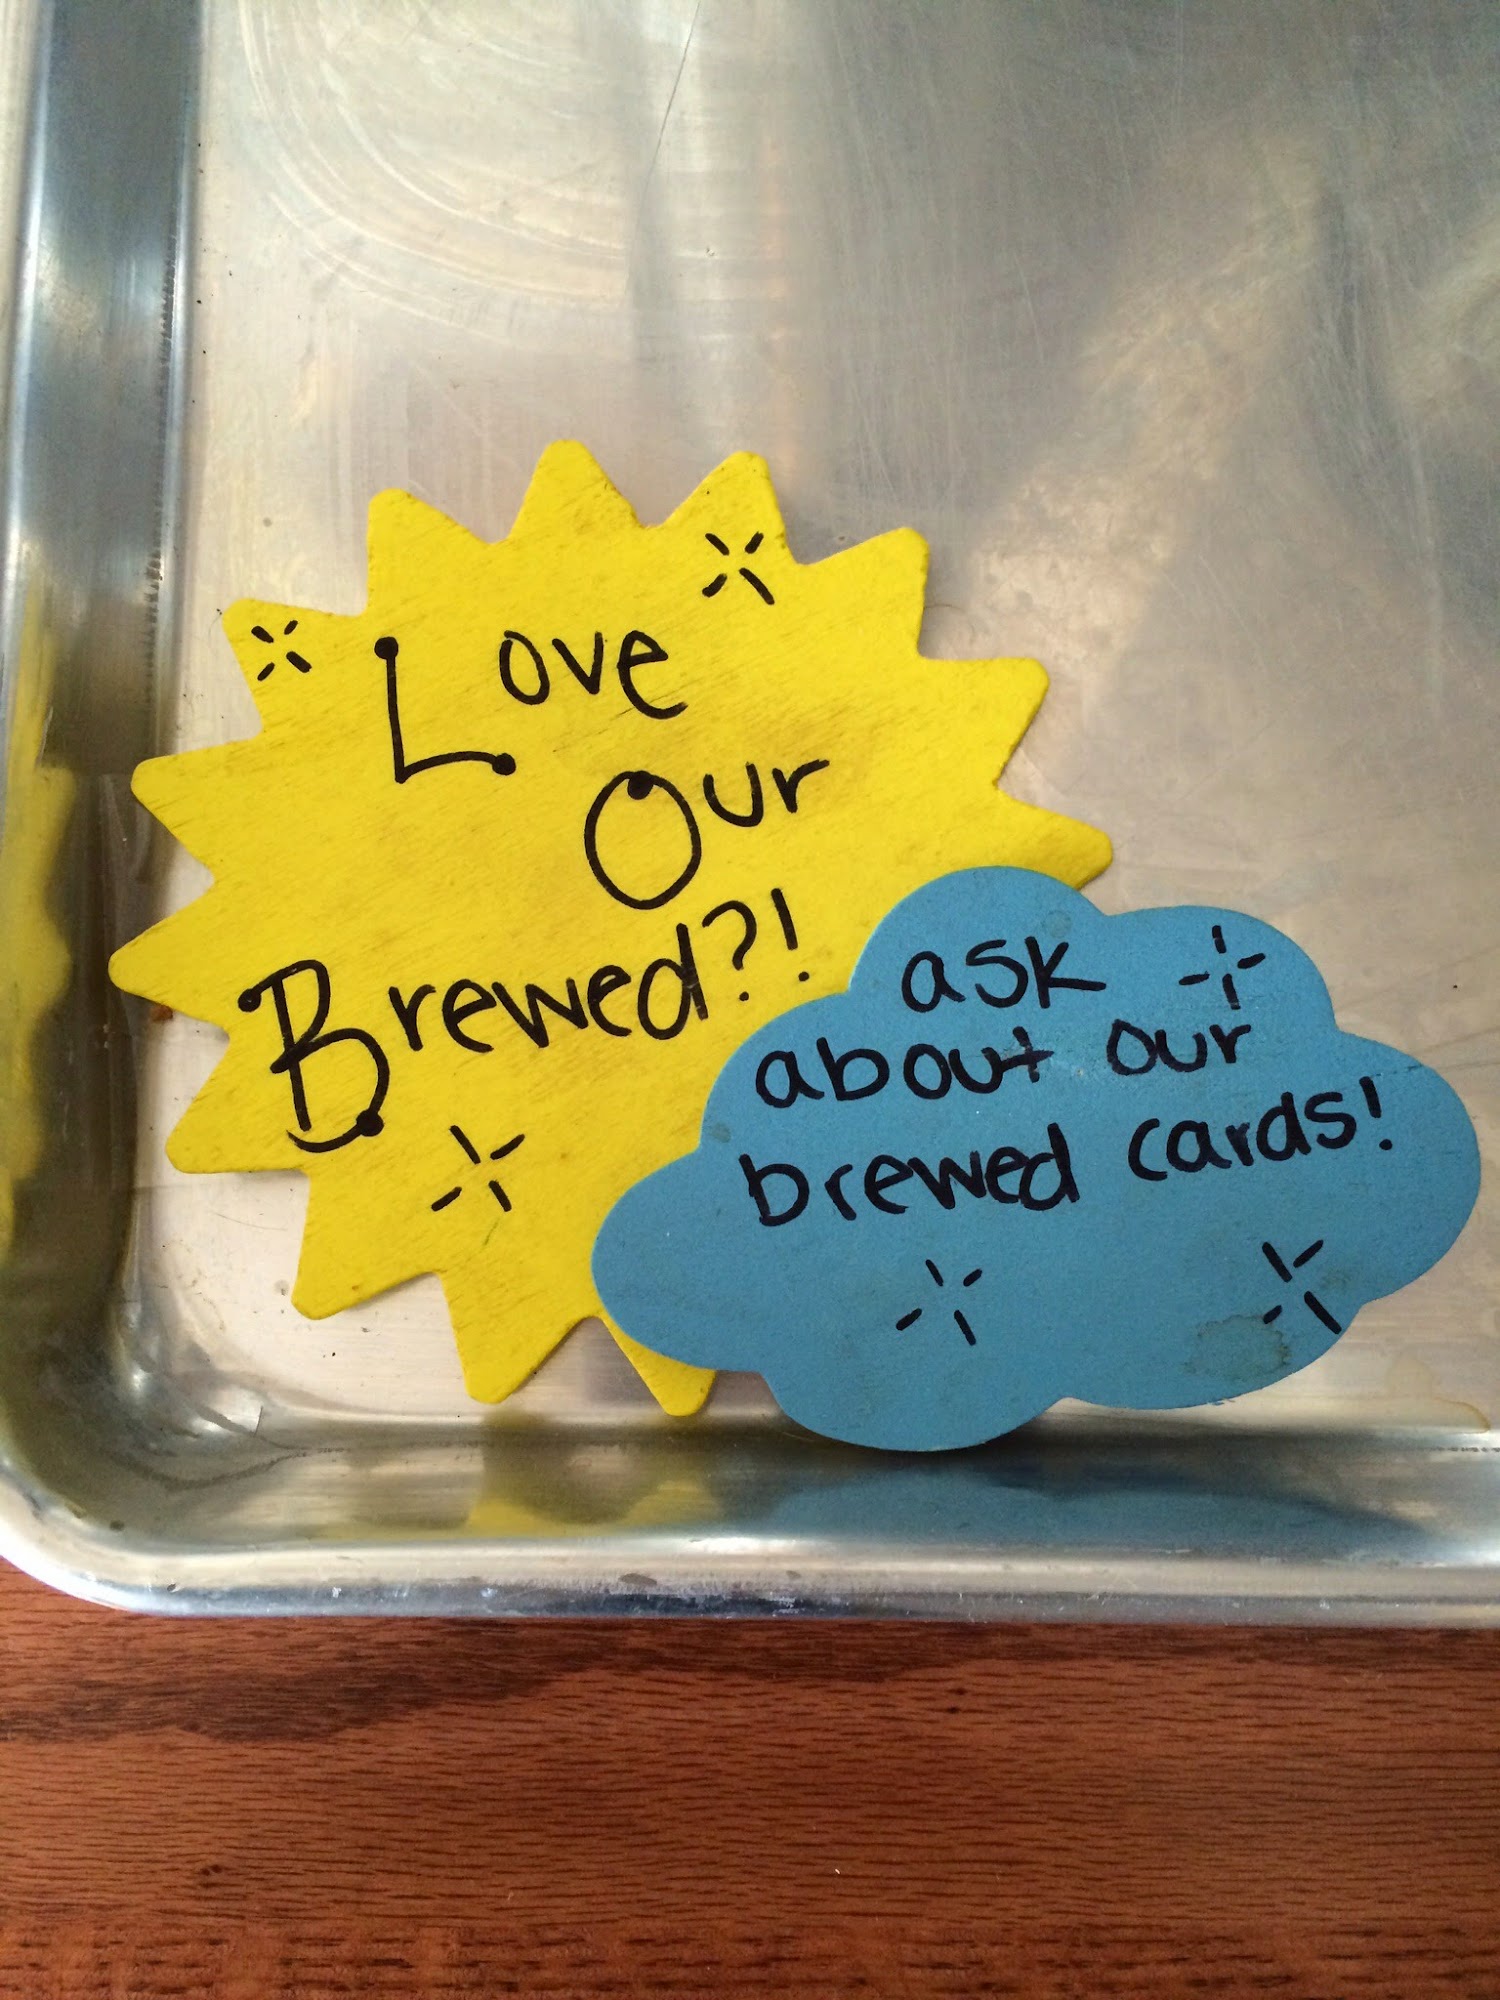 Love
Our
Brewed?!
ask
about our
brewed cards!